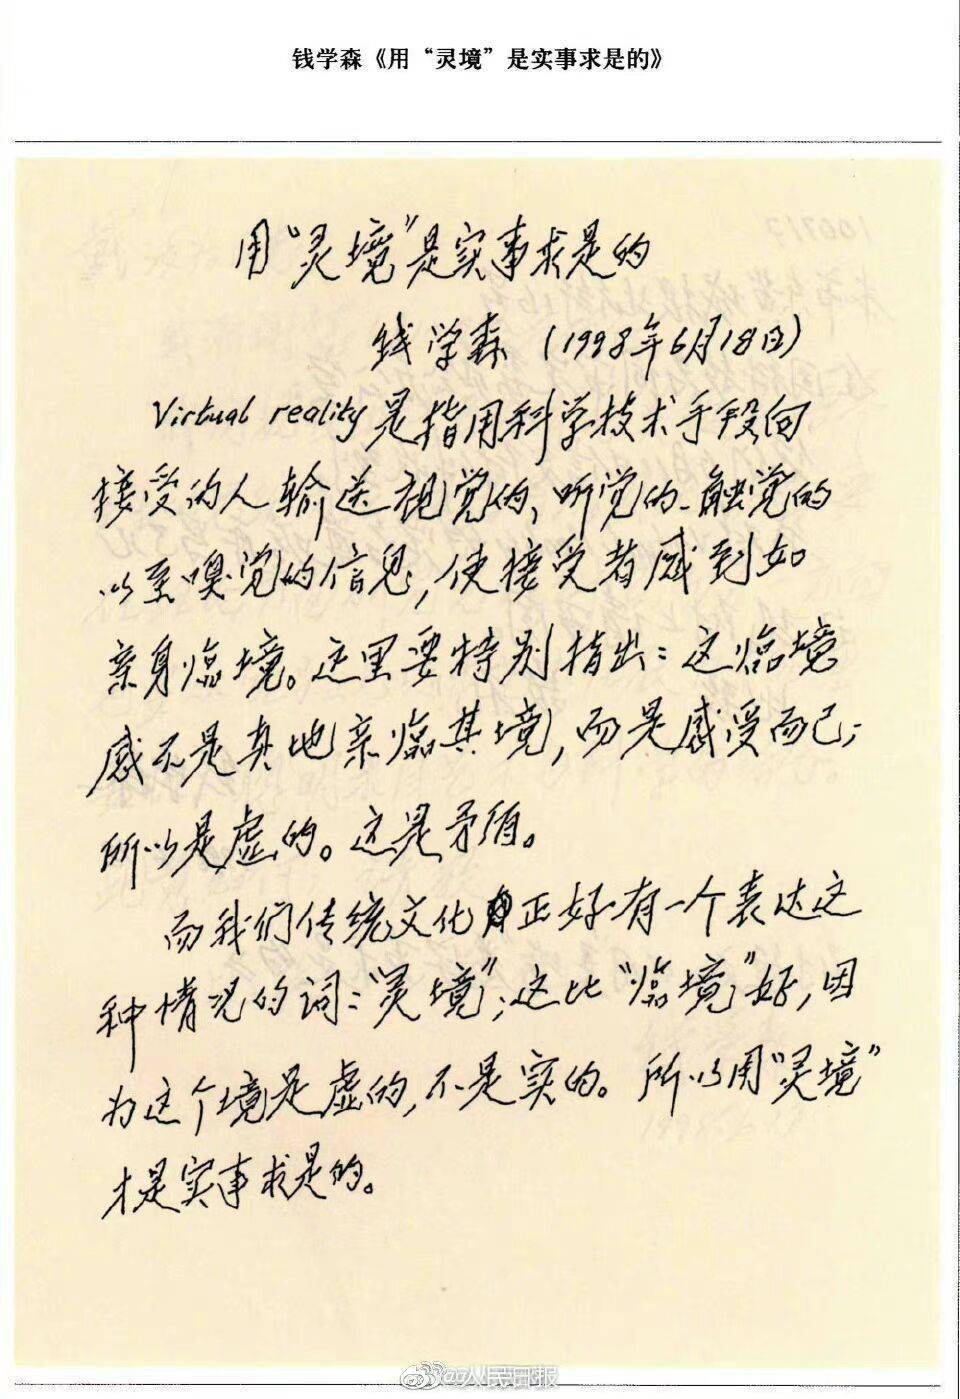 钱学森《用“灵境”是实事求是的》
用“灵境”是实事求是的
钱学森 (1998年6月18日)
Virtual reality 是指用科学技术手段向
接受的人输送视觉的、听觉的、触觉的
以至嗅觉的信息, 使接受者感到如
亲身临境。这里要特别指出: 这临境
感不是真地亲临其境, 而是感受而已;
所以是虚的。这是矛盾。
而我们传统文化正好有一个表达这
种情况的词: “灵境”; 这比“临境”好, 因
为这个境是虚的, 不是实的。所以用“灵境”
才是实事求是的。
@人民日报